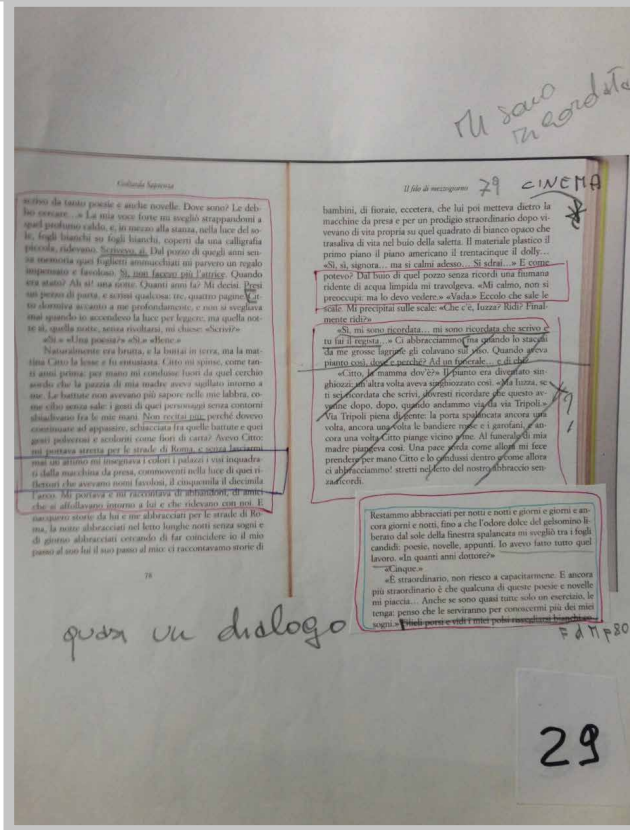 Mi sono
ricordata
Goliarda Sapienza
scrivo da tanto poesie e anche novelle. Dove sono? Le deb-
bo cercare...» La mia voce forte mi svegliò strappandomi a
quel profumo caldo, e, in mezzo alla stanza, nella luce del so-
le, fogli bianchi su fogli bianchi, coperti da una calligrafia
piccola, ridevano. Scrivevo, sì. Dal pozzo di quegli anni sen-
za memoria quei foglietti ammucchiati mi parvero un regalo
impensato e favoloso. Sì, non facevo più l'attrice. Quando
era stato? Ah sì! una notte. Quanti anni fa? Mi decisi. Presi
un pezzo di carta, e scrissi qualcosa: tre, quattro pagine. Cit-
to dormiva accanto a me profondamente, e non si svegliava
mai quando io accendevo la luce per leggere, ma quella not-
te sì, quella notte, senza rivoltarsi, mi chiese: «Scrivi?»
«Sì.» «Una poesia?» «Sì.» «Bene.»
Naturalmente era brutta, e la buttai in terra, ma la mat-
tina Citto la lesse e fu entusiasta. Citto mi spinse, come tan-
ti anni prima: per mano mi condusse fuori da quel cerchio
sordo che la pazzia di mia madre aveva sigillato intorno a
me. Le battute non avevano più sapore nelle mie labbra, co-
me cibo senza sale: i gesti di quei personaggi senza contorni
sbiadivano fra le mie mani. Non recitai più: perché dovevo
continuare ad appassire, schiacciata fra quelle battute e quei
gesti polverosi e scoloriti come fiori di carta? Avevo Citto:
mi portava stretta per le strade di Roma, e senza lasciarmi
mai un attimo mi insegnava i colori i palazzi i visi inquadra-
ti dalla macchina da presa, commoventi nella luce di quei ri-
flettori che avevano nomi favolosi, il cinquemila il diecimila
l'arco. Mi portava e mi raccontava di abbandoni, di amici
che si affollavano intorno a lui e che ridevano con noi. E
nacquero storie da lui e me abbracciati per le strade di Ro-
ma, la notte abbracciati nel letto lunghe notti senza sogni e
di giorno abbracciati cercando di far coincidere io il mio
passo al suo lui il suo passo al mio: ci raccontavamo storie di
78
Il filo di mezzogiorno
79
CINEMA
bambini, di fioraie, eccetera, che lui poi metteva dietro la
macchina da presa e per un prodigio straordinario dopo vi-
vevano di vita propria su quel quadrato di bianco opaco che
trasaliva di vita nel buio della saletta. Il materiale plastico il
primo piano il piano americano il trentacinque il dolly...
«Sì, sì, signora... ma si calmi adesso... Si sdrai...» E come
potevo? Dal buio di quel pozzo senza ricordi una fiumana
ridente di acqua limpida mi travolgeva. «Mi calmo, non si
preoccupi: ma lo devo vedere.» «Vada.» Eccolo che sale le
scale. Mi precipitai sulle scale: «Che c'è, Iuzza? Ridi? Final-
mente ridi?»
«Sì, mi sono ricordata... mi sono ricordata che scrivo e
tu fai il regista...» Ci abbracciammo ma quando lo staccai
da me grosse lagrime gli colavano sul viso. Quando aveva
pianto così, dove e perché? Ad un funerale... e di chi?
«Citto, la mamma dov'è?» Il pianto era diventato sin-
ghiozzi: un'altra volta aveva singhiozzato così. «Ma Iuzza, se
ti sei ricordata che scrivi, dovresti ricordare che questo av-
venne dopo, dopo, quando andammo via da via Tripoli.»
Via Tripoli piena di gente: la porta spalancata ancora una
volta, ancora una volta le bandiere rosse e i garofani, e an-
cora una volta Citto piange vicino a me. Al funerale di mia
madre piangeva così. Una pace sorda come allora mi fece
prendere per mano Citto e lo condussi dentro e come allora
ci abbracciammo! stretti nel letto del nostro abbraccio sen-
za ricordi.
79
Restammo abbracciati per notti e notti e giorni e giorni e an-
cora giorni e notti, fino a che l'odore dolce del gelsomino li-
berato dal sole della finestra spalancata mi svegliò tra i fogli
candidi: poesie, novelle, appunti. Io avevo fatto tutto quel
lavoro. «In quanti anni dottore?»
«Cinque.»
«È straordinario, non riesco a capacitarmene. E ancora
più straordinario è che qualcuna di queste poesie e novelle
mi piaccia... Anche se sono quasi tutte solo un esercizio, le
tenga: penso che le serviranno per conoscermi più dei miei
sogni.» Glieli porsi e vidi i miei polsi
F d M p80
quasi un dialogo
29